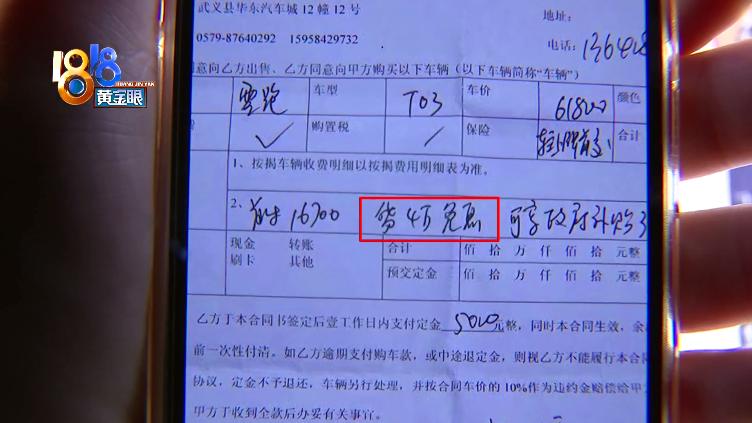 武义县华东汽车城12幢12号
地址:
0579-87640292 15958429732
电话:
1818
HUANG JIN YAN
黄金眼
同意向乙方出售、乙方同意向甲方购买以下车辆(以下车辆简称"车辆")
零跑 车型 T03 车价 61800 颜色
✓ 购置税 / 保险 合计
1、按揭车辆收费明细以按揭费用明细表为准。
2、 16700 贷4万免息 可享政府补贴
现金 转账 合计 佰 拾 万 仟 佰 拾 元整
刷卡 其他 预交定金 佰 拾 万 仟 佰 拾 元整
乙方于本合同书签定后壹工作日内支付定金 5000 元整,同时本合同生效,余
前一次性付清。如乙方逾期支付购车款,或中途退定金,则视乙方不能履行本合同
协议,定金不予退还,车辆另行处理,并按合同车价的10%作为违约金赔偿给甲
甲方于收到全款后办妥有关事宜。